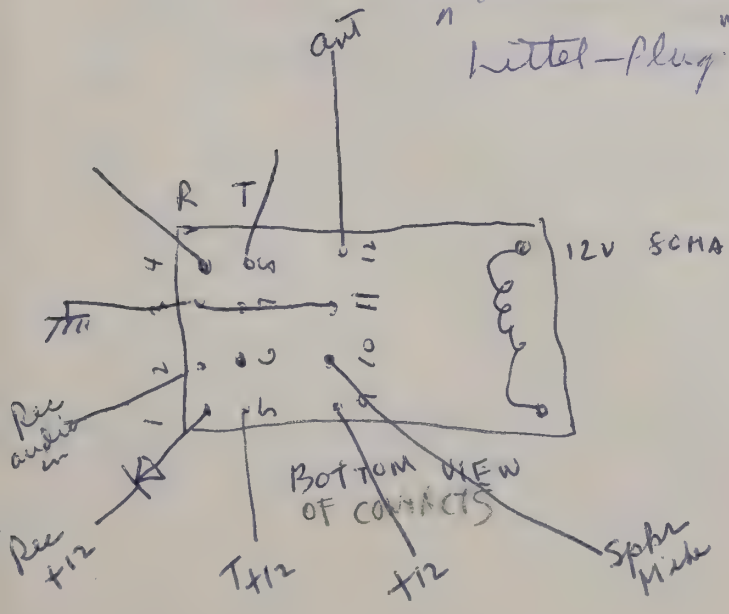 ant
"Littel-Plug"
R T
4 8 12
12V 50MA
3 7 11
2 6 10
Rec
audio
in
1 5 9
BOTTOM VIEW
OF CONTACTS
Rec
+12
T+12
+12
Spkr
Mike